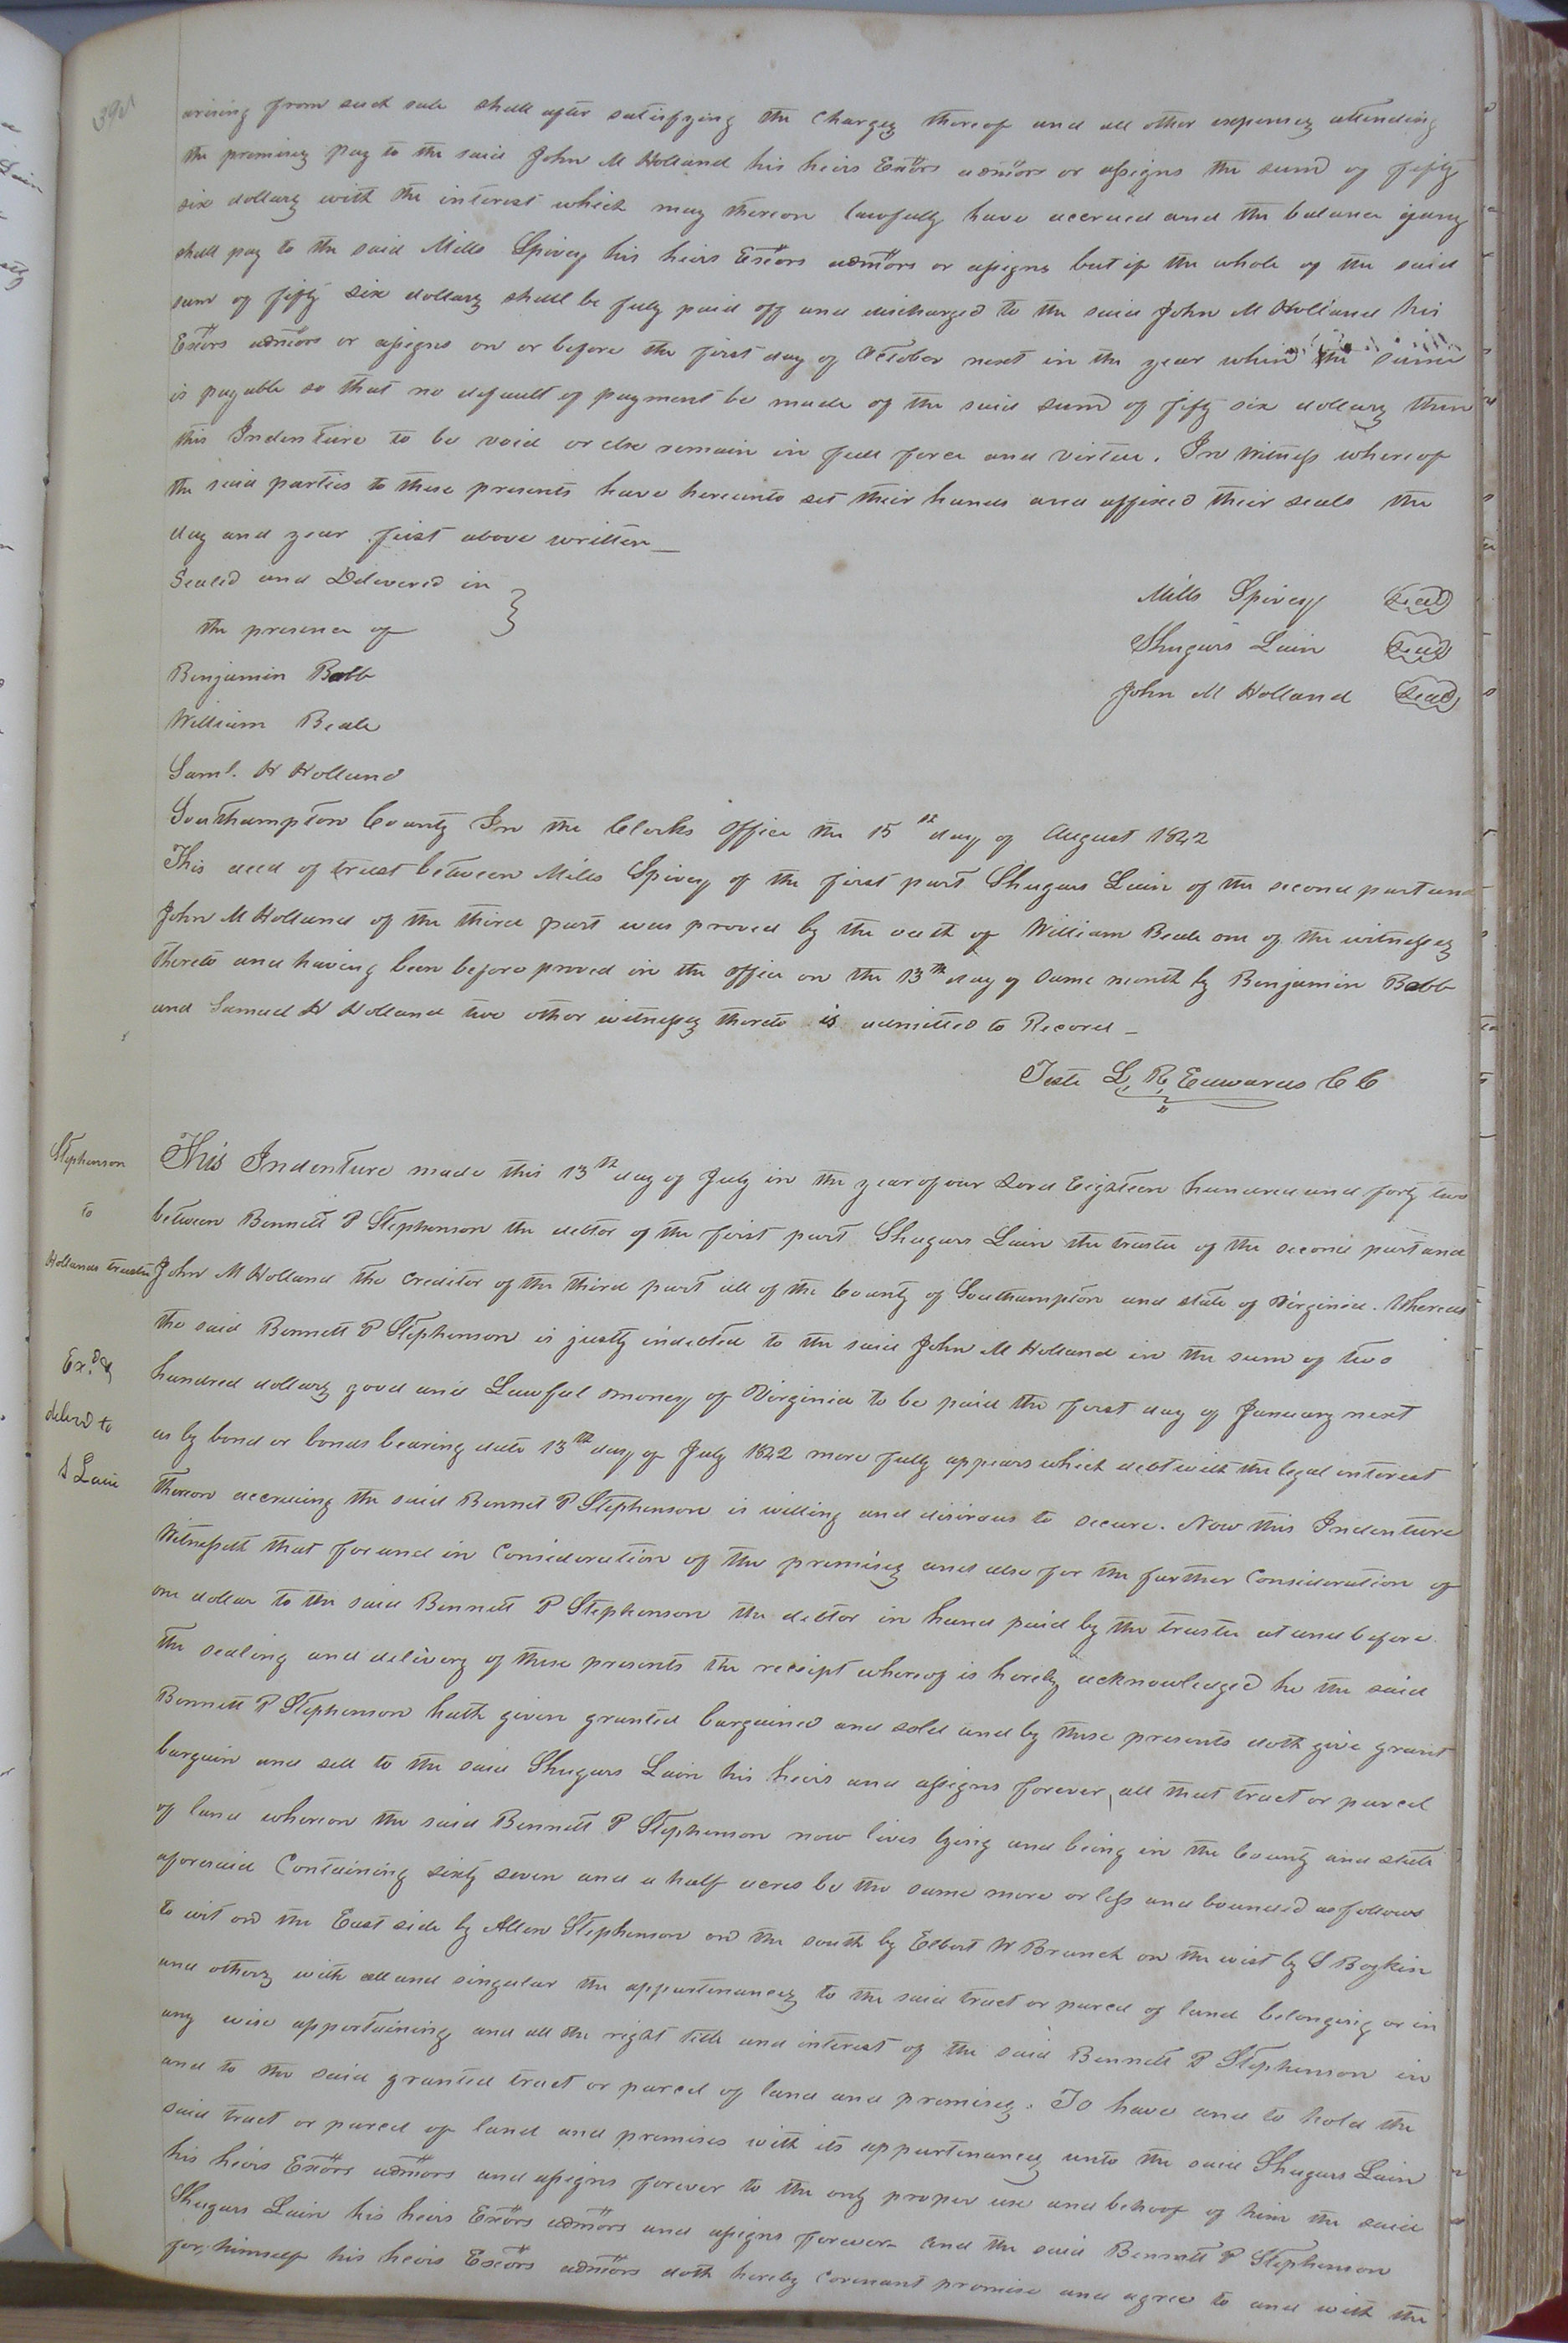 arising from such sale shall after satisfying the charges thereof and all other expenses attending
the premises pay to the said John M Holland his heirs Exōrs admōrs or assigns the sum of fifty
six dollars with the interest which may thereon lawfully have accrued and the balance if any
shall pay to the said Mills Spivey his heirs Exōrs admōrs or assigns but if the whole of the said
sum of fifty six dollars shall be fully paid off and discharged to the said John M Holland his
Exōrs admōrs or assigns on or before the first day of October next in the year when the same
is payable so that no default of payment be made of the said sum of fifty six dollars then
this Indenture to be void or else remain in full force and virtue. In Witness whereof
the said parties to these presents have hereunto set their hands and affixed their seals the
day and year first above written
Sealed and Delivered in
the presence of
Mills Spivey Seal
Shugars Lain Seal
John M Holland Seal
Benjamin Babb
William Beale
Saml. H Holland
Southampton County In the Clerks Office the 15th day of August 1842
This deed of trust between Mills Spivey of the first part Shugars Lain of the second part and
John M Holland of the third part was proved by the oath of William Beale one of the witnesses
thereto and having been before proved in the office on the 13th day of same month by Benjamin Babb
and Samuel H Holland two other witnesses thereto is admitted to Record
Teste L, R, Edwards C C
Stephenson
to
Hollands trustee
Exd. &
delivd to
S Lain
This Indenture made this 13th day of July in the year of our Lord Eighteen hundred and forty two
between Bennett P Stephenson the debtor of the first part Shugars Lain the trustee of the second part and
John M Holland the Creditor of the third part all of the County of Southampton and state of Virginia. Whereas
the said Bennett P Stephenson is justly indebted to the said John M Holland in the sum of two
hundred dollars good and Lawful money of Virginia to be paid the first day of January next
as by bond or bonds bearing date 13th day of July 1842 more fully appears which debt with the legal interest
thereon accruing the said Bennet P Stephenson is willing and disirous to secure. Now this Indenture
Witnesseth that for and in Consideration of the premises and also for the further Consideration of
one dollar to the said Bennett P Stephenson the debtor in hand paid by the trustee at and before
the sealing and delivery of these presents the receipt whereof is hereby acknowledged he the said
Bennett P Stephenson hath given granted bargained and sold and by these presents doth give grant
bargain and sell to the said Shugars Lain his heirs and assigns forever, all that tract or parcel
of land whereon the said Bennett P Stephenson now lives lying and being in the County and state
aforesaid Containing sixty seven and a half acres be the same more or less and bounded as follows
to wit on the East side by Allen Stephenson on the south by Elbert W Branch on the west by S Boykin
and others with all and singular the appurtenances to the said tract or parcel of land belonging or in
any wise appertaining and all the right title and interest of the said Bennett P Stephenson in
and to the said granted tract or parcel of land and premises. To have and to hold the
said tract or parcel of land and premises with its appurtenances unto the said Shugars Lain
his heirs Exōrs admōrs and assigns forever to the only proper use and behoof of him the said
Shugars Lain his heirs Exōrs admōrs and assigns forever and the said Bennett P Stephenson
for, himself his heirs Exōrs admōrs doth hereby Covenant promise and agree to and with the